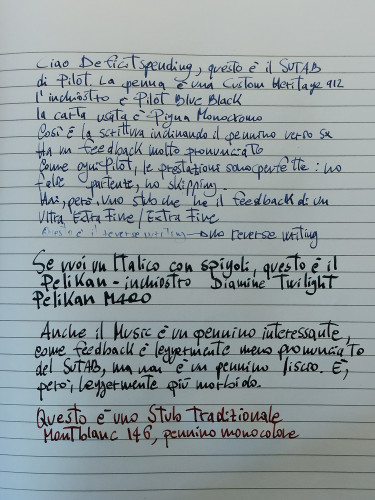 Ciao Deficitspending, questo è il SUTAB
di Pilot. La penna è una Custom Heritage 912
l'inchiostro è Pilot Blue Black
la carta usata è Pigna Monocromo
Così è la scrittura inclinando il pennino verso su
Ha un feedback molto pronunciato
Come ogni Pilot, le prestazioni sono perfette: no
false partente, no skipping.
Hai, però, uno stub che ha il feedback di un
Ultra Extra Fine / Extra Fine
Questo è il reverse writing uno reverse writing
Se vuoi un Italico con spigoli, questo è il
Pelikan - inchiostro Diamine Twilight
Pelikan M400
Anche il Music è un pennino interessante,
come feedback è leggermente meno pronunciato
del SUTAB, ma non è un pennino liscio. È,
però, leggermente più morbido.
Questo è uno Stub Tradizionale
Montblanc 146, pennino monocolore